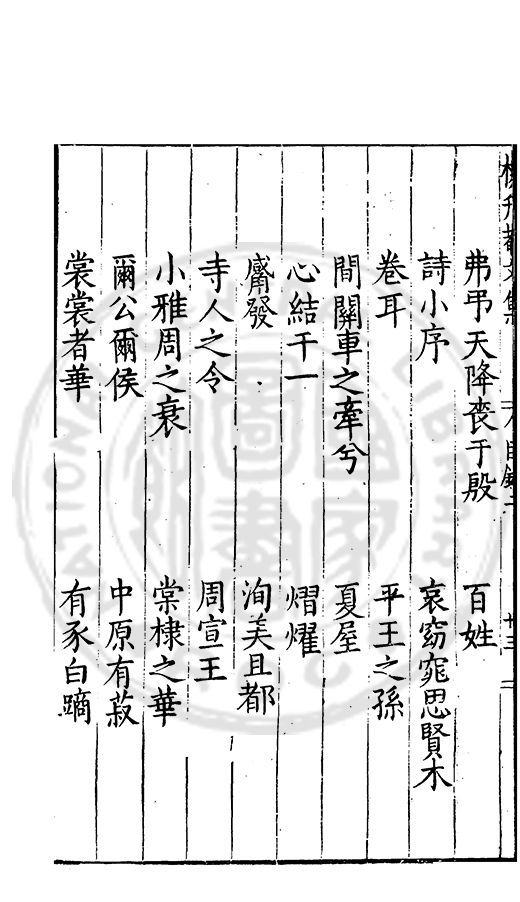 弗弔天降喪于殷 百姓
詩小序 哀窈窕思賢木
卷耳 平王之孫
間關車之舝兮 夏屋
心結于一 熠燿
觱發 洵美且都
寺人之令 周宣王
小雅周之衰 棠棣之華
爾公爾侯 中原有菽
裳裳者華 有豕白蹢